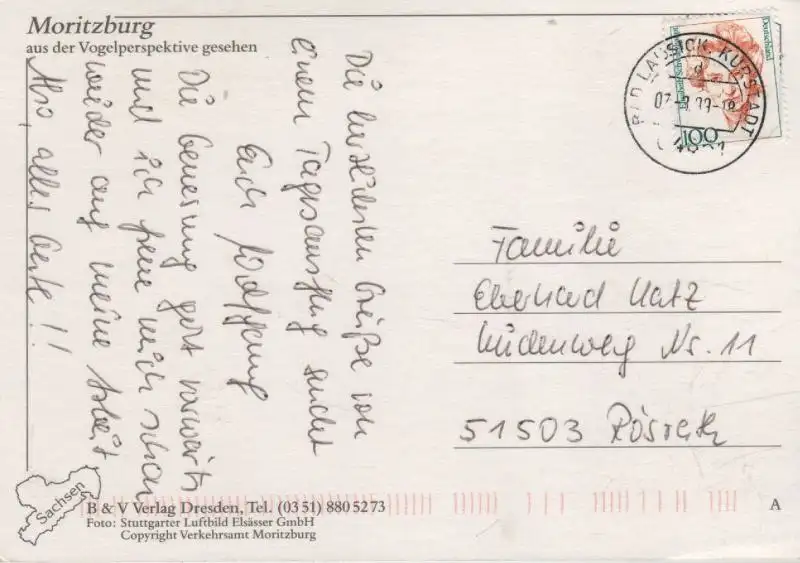 Moritzburg
aus der Vogelperspektive gesehen
Die herzlichsten Grüße von
einem Tagesausflug sendet
Euch Wolfgang
Die Genesung geht vorwärts
und ich freue mich schon
wieder auf meine Arbeit
Also, alles Gute!!
Deutschland
100
BAD LAUSICK KURSTADT
Familie
Eberhard Katz
Lüdenweg Nr. 11
51503 Rösrath
Sachsen
B & V Verlag Dresden, Tel. (03 51) 8 80 52 73
Foto: Stuttgarter Luftbild Elsässer GmbH
Copyright Verkehrsamt Moritzburg
A